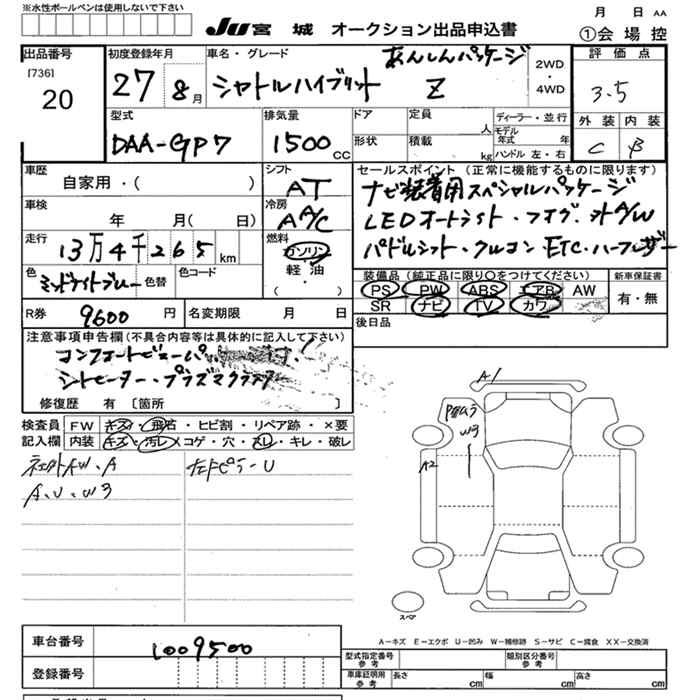 ※水性ボールペンは使用しないで下さい
JU 宮 城 オークション出品申込書
月 日 AA
①会 場 控
出品番号
[736]
20
初度登録年月
27 年 8 月
車名・グレード
あんしんパッケージ
シャトルハイブリット Z
2WD
・
4WD
評 価 点
3.5
外 装
内 装
C
B
型式
DAA-GP7
排気量
1500 CC
ドア
形状
定員
人
積載
kg
ディーラー・並 行
モデル年式 年
ハンドル 左・右
車歴
自家用・( )
シフト
AT
セールスポイント (正常に機能するものに限ります)
ナビ装着用スペシャルパッケージ
LEDオートライト・フォグ・社外AW
パドルシフト・クルコン ETC・ハーフレザー
車検
年 月( 日)
冷房
A A/C
走行
13万4千265 km
燃料
ガソリン
軽 油
( ・ )
色
ミッドナイトブルー
色替
色コード
装備品 (純正品に限り○をつけてください)
PS PW ABS エアB AW
SR ナビ TV カワ
新車保証書
有・無
R券
9600 円
名変期限 月 日
後日品
注意事項申告欄(不具合内容等は具体的に記入して下さい)
コンフォートビューパッケージ!
シートヒーター・プラズマクラスター
修復歴 有 〔箇所 〕
検査員記入欄
FW キズ・飛石・ヒビ割・リペア跡・×要
内装 キズ・汚レ・コゲ・穴・スレ・キレ・破レ
AW・A
ピラーU
A.U.W3
A1
W3
A2
スペア
A－キズ E－エクボ U－凹み W－補修跡 S－サビ C－腐食 XX－交換済
車台番号
1009500
登録番号
型式指定番号
参 考
類別区分番号
参 考
車庫証明用
参 考
長さ cm
幅 cm
高さ cm